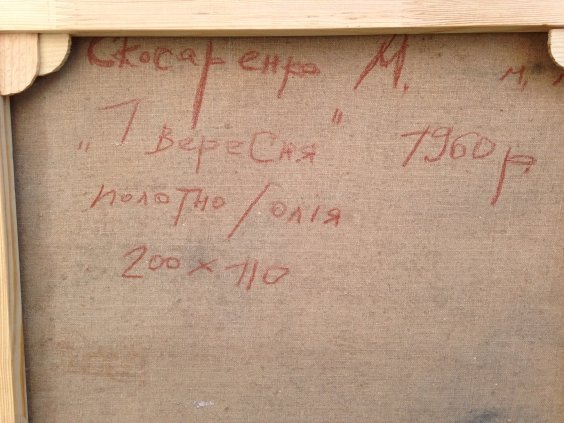 Скосаренко М. м.
„1 вересня" 1960 р
полотно/олія
200 × 110